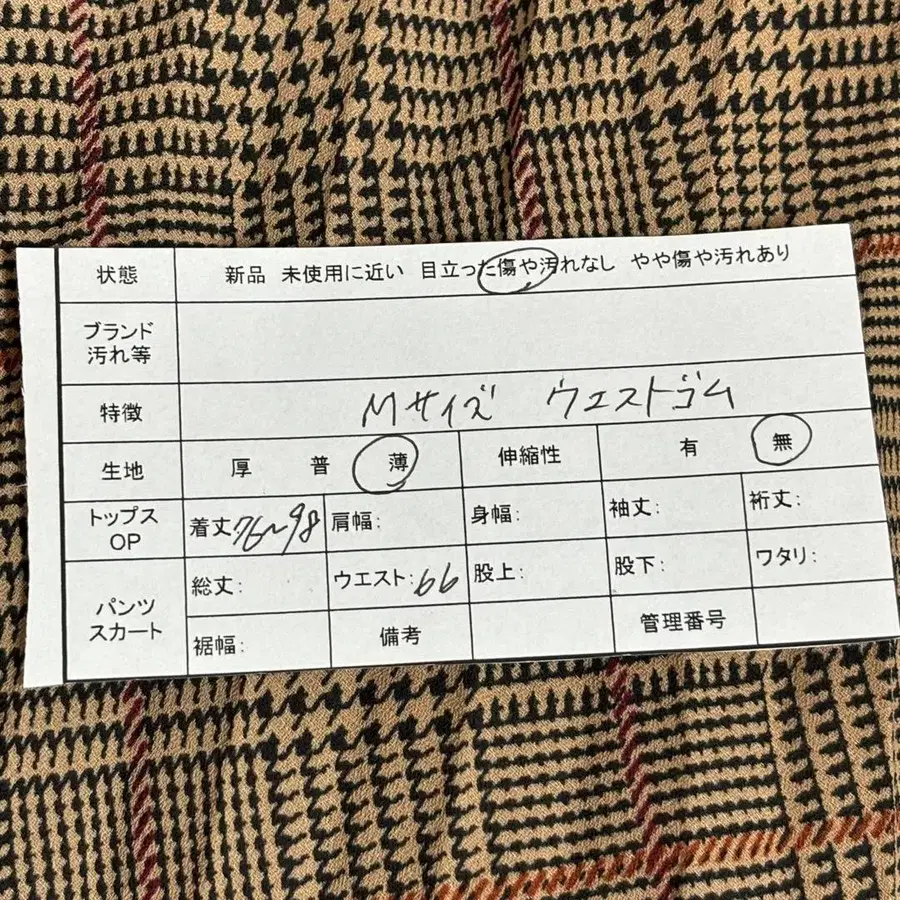 状態 新品 未使用に近い 目立った傷や汚れなし やや傷や汚れあり
ブランド
汚れ等
特徴 Mサイズ ウエストゴム
生地 厚 普 薄 伸縮性 有 無
トップス
OP
着丈76~98 肩幅: 身幅: 袖丈: 裄丈:
パンツ
スカート
総丈: ウエスト:66 股上: 股下: ワタリ:
裾幅: 備考 管理番号